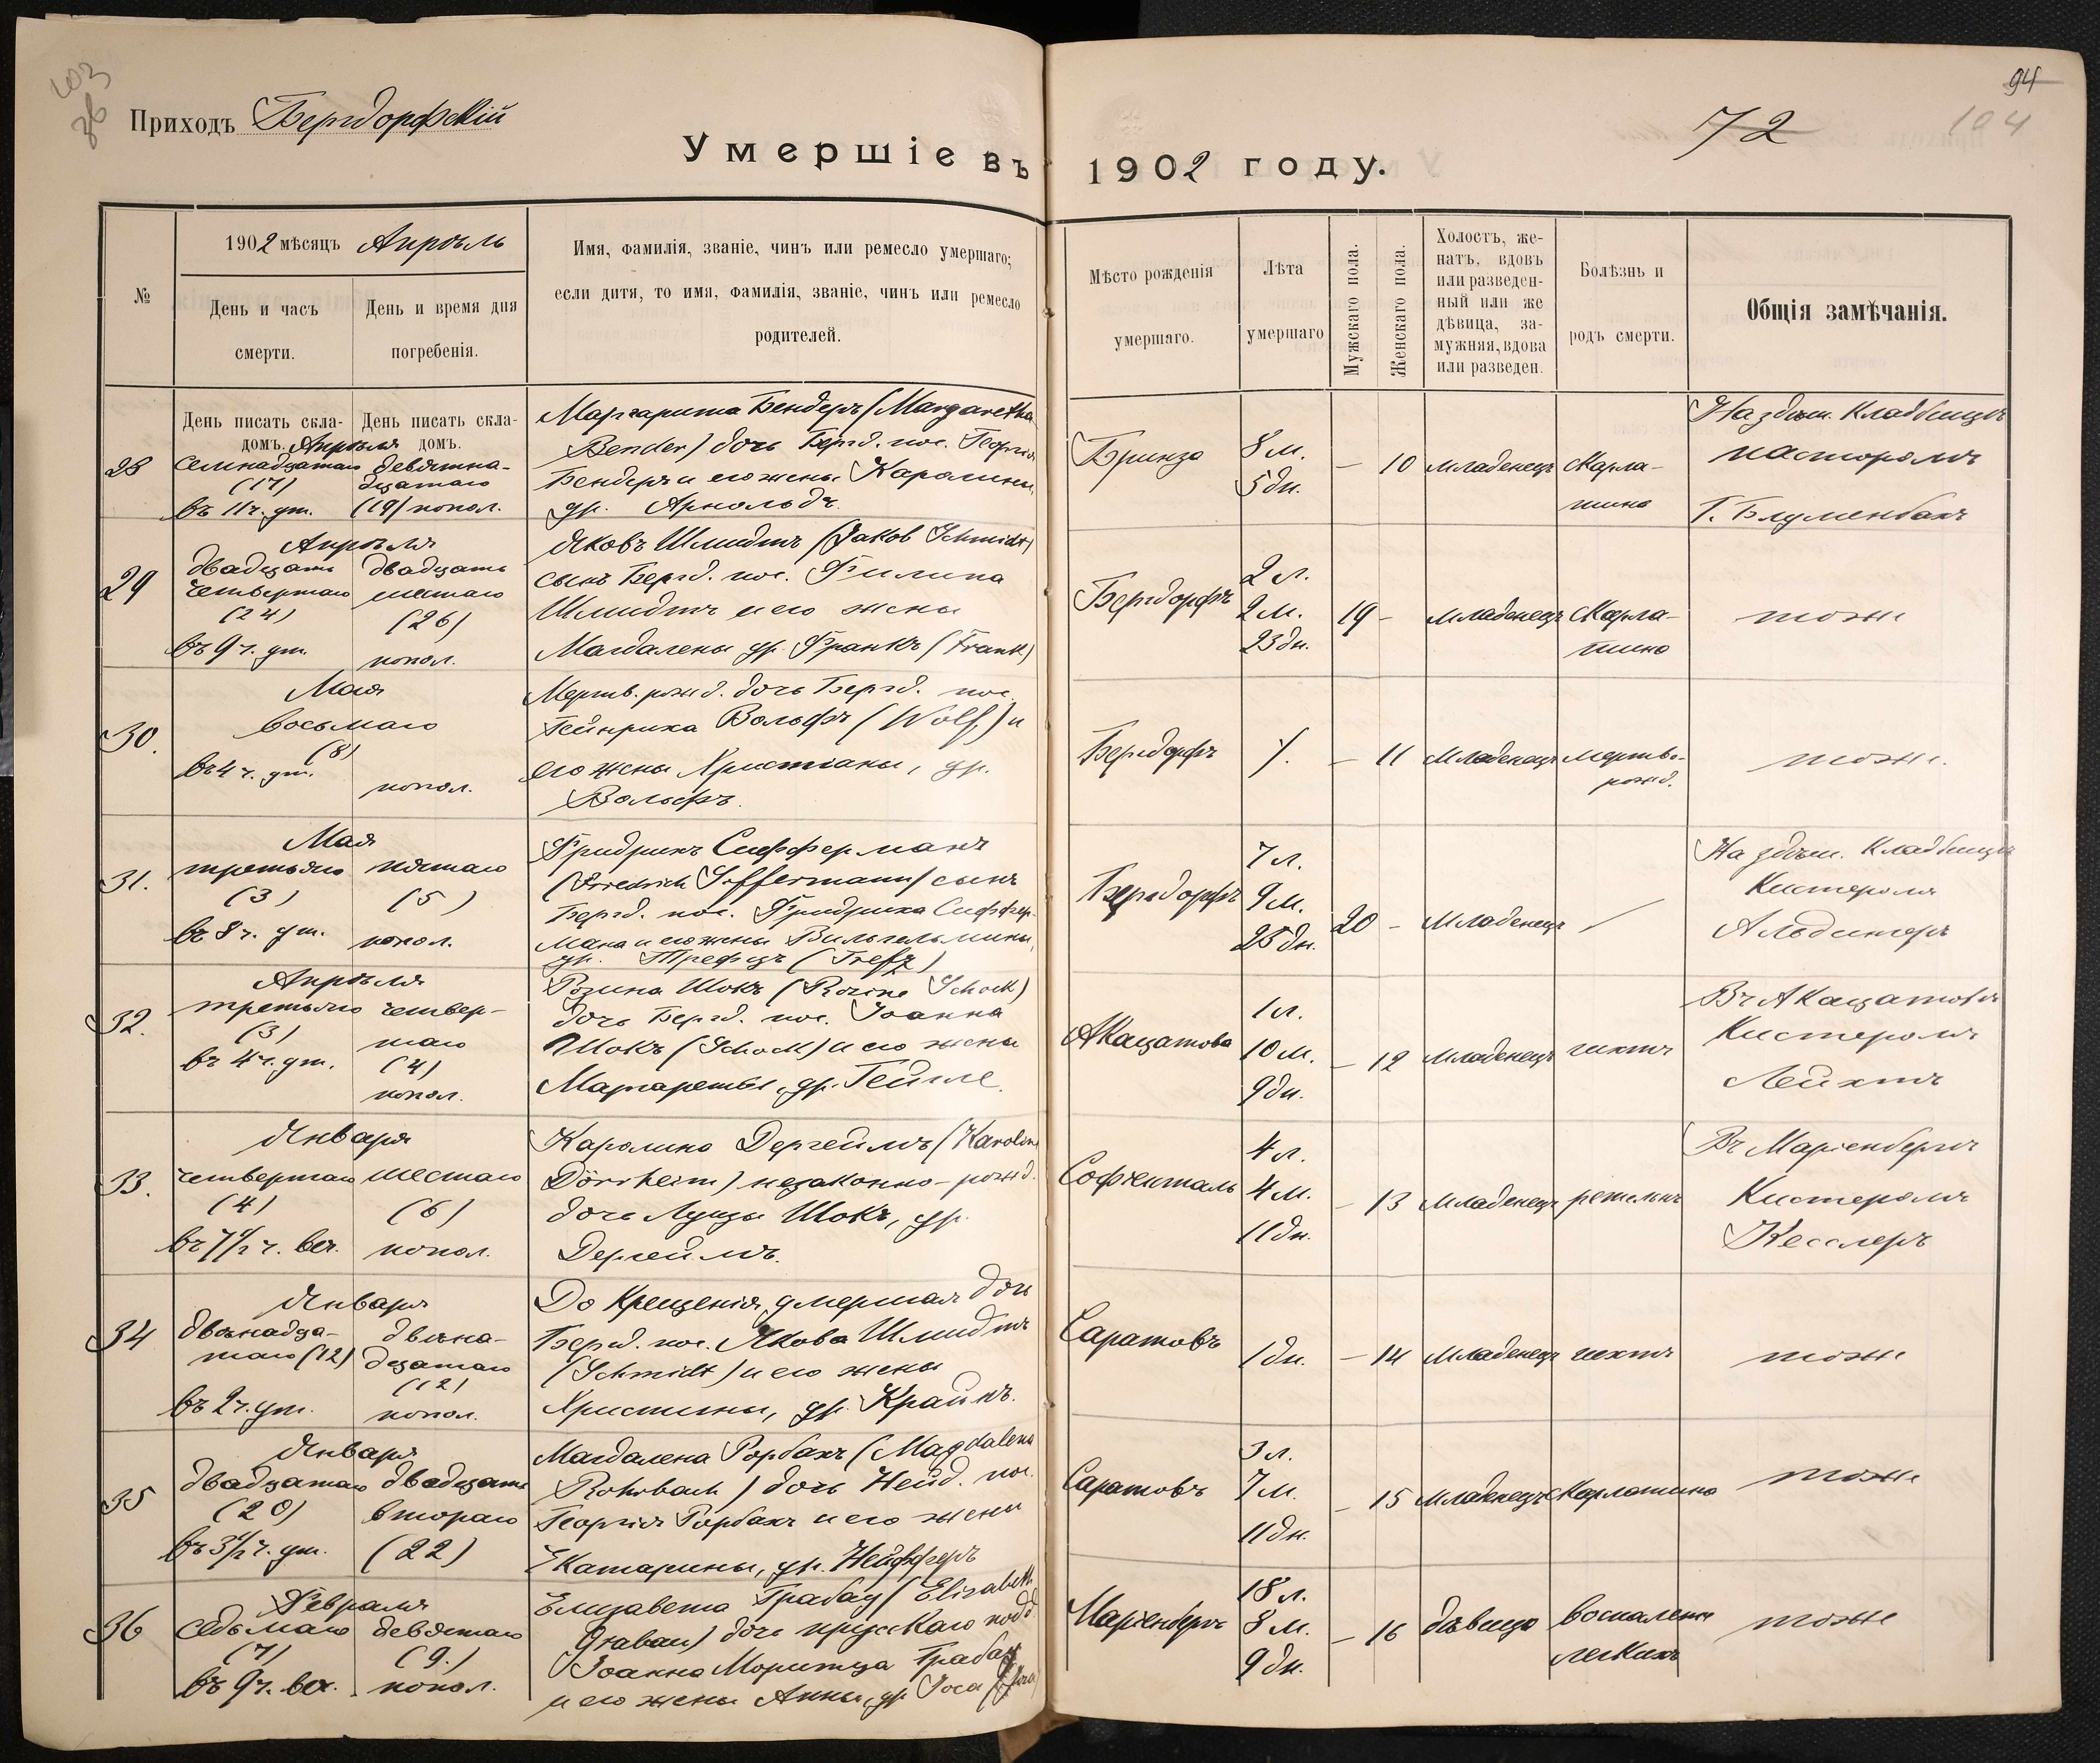 103
36
Приходъ Бергдорфскій
Умершіе въ
№
1902 мѣсяцъ Апрѣль
День и часъ
смерти.
День и время дня
погребенія.
Имя, фамилія, званіе, чинъ или ремесло умершаго;
если дитя, то имя, фамилія, званіе, чинъ или ремесло
родителей.
День писать скла-
домъ.
День писать скла-
домъ.
28
Апрѣля
семнадцатаго
(17)
въ 11 ч. ут.
девятна-
дцатаго
(19) попол.
Маргарита Бендеръ (Margaretha
Bender) дочь Бергд. пос. Георгія
Бендеръ и его жены Каролины,
ур. Арнольдъ.
29
Апрѣля
двадцать
четвертаго
(24)
въ 9 ч. ут.
двадцать
шестаго
(26)
попол.
Яковъ Шмидтъ (Jakob Schmidt)
сынъ Бергд. пос. Филипа
Шмидтъ и его жены
Магдалены ур. Франкъ (Frank)
30.
Мая
восьмаго
(8)
въ 4 ч. ут.
попол.
Мертв. рожд. дочь Бергд. пос.
Гейнриха Вольфъ (Wolf,) и
его жены Христіаны, ур.
Вольфъ.
31.
Мая
третьяго
(3)
въ 8 ч. ут.
пятаго
(5)
попол.
Фридрихъ Сифферманъ
(Friedrich Siffermann) сынъ
Бергд. пос. Фридриха Сиффер-
мана и его жены Вильгельмины,
ур. Трефцъ (Trefz)
32.
Апрѣля
третьяго
(3)
въ 4 ч. ут.
четвер-
таго
(4)
попол.
Розина Шокъ (Rosine Schock)
дочь Бергд. пос. Іоанна
Шокъ (Schock) и его жены
Маргареты, ур. Гейгле.
33.
Января
четвертаго
(4)
въ 7 1/2 ч. веч.
шестаго
(6)
попол.
Каролина Дергеймъ (Karolina
Dörrheim) незаконно-рожд.
дочь Луизы Шокъ, ур.
Дергеймъ.
34
Января
двѣнадца-
таго (12)
въ 2 ч. ут.
двѣна-
дцатаго
(12)
попол.
До крещенія умершая дочь
Бергд. пос. Якова Шмидтъ
(Schmidt) и его жены
Христины, ур. Крайнъ.
35
Января
двадцатаго
(20)
въ 3 1/2 ч. ут.
двадцать
втораго
(22)
Магдалена Рорбахъ (Magdalena
Rohrbach) дочь Нейд. пос.
Георгія Рорбахъ и его жены
Екатарины, ур. Нейфферъ
36
Февраля
седьмаго
(7)
въ 9 ч. веч.
девятаго
(9.)
попол.
Елизавета Грабау (Elisabeth
Grabau) дочь прусскаго подд.
Іоанна Моритца Грабау
и его жены Анны, ур. Іоса
94
72
104
1902 году.
Мѣсто рожденія
умершаго.
Лѣта
умершаго
Мужскаго пола.
Женскаго пола.
Холостъ, же-
натъ, вдовъ
или разведен-
ный или же
дѣвица, за-
мужняя, вдова
или разведен.
Болѣзнь и
родъ смерти.
Общія замѣчанія.
Бринза
8 м.
5 дн.
– 10
младенецъ
скарла-
тина
На здѣш. кладбищѣ
пасторомъ
Г. Блуменбахъ
Бергдорфъ
2 л.
2 м.
23 дн.
19 –
младенецъ
скарла-
тина
тоже
Бергдорфъ
/.
– 11
младенецъ
мертво-
рожд.
тоже.
Бергдорфъ
7 л.
9 м.
25 дн.
20 –
младенецъ
/
На здѣш. кладбищѣ
Кистеромъ
Альдингеръ
Акацатова
1 л.
10 м.
9 дн.
– 12
младенецъ
гихтъ
Въ Акацатовѣ
Кистеромъ
Лейхтъ
Софіенталь
4 л.
4 м.
11 дн.
– 13
младенецъ
ретельнъ
Въ Маріенбергѣ
Кистеромъ
Кесслеръ
Саратовъ
1 дн.
– 14
младенецъ
гихтъ
тоже
Саратовъ
3 л.
7 м.
11 дн.
– 15
младенецъ
скарлатина
тоже
Маріенбергъ
18 л.
8 м.
9 дн.
– 16
дѣвица
воспаленіе
легкихъ
тоже